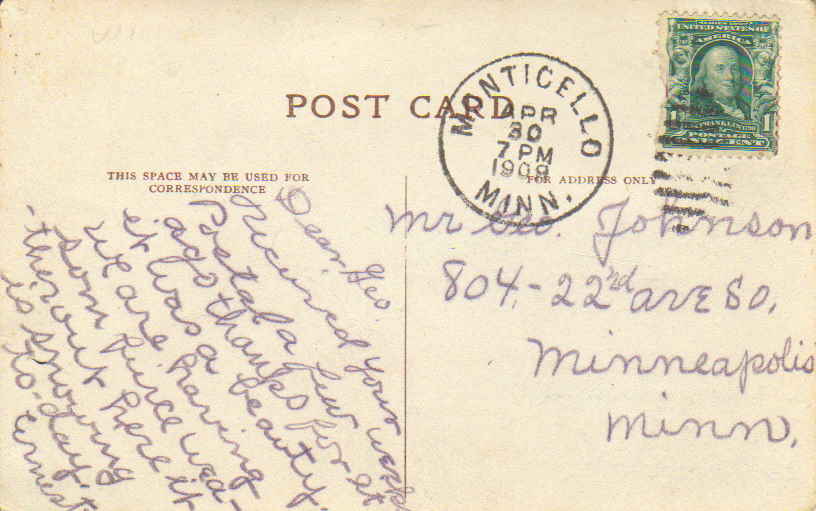 POST CARD
THIS SPACE MAY BE USED FOR
CORRESPONDENCE
FOR ADDRESS ONLY
MONTICELLO
APR
30
7 PM
1909
MINN.
UNITED STATES OF
AMERICA
FRANKLIN
1 1
POSTAGE
ONE CENT
Dear Geo.
Received your
Postal a few weeks
ago thanks for it
it was a beauty.
we are having
som feirce wea-
-ther out here it
is snowing
to-day.
Ernest
Mr Geo. Johnson
804,-22nd ave So,
Minneapolis
Minn,